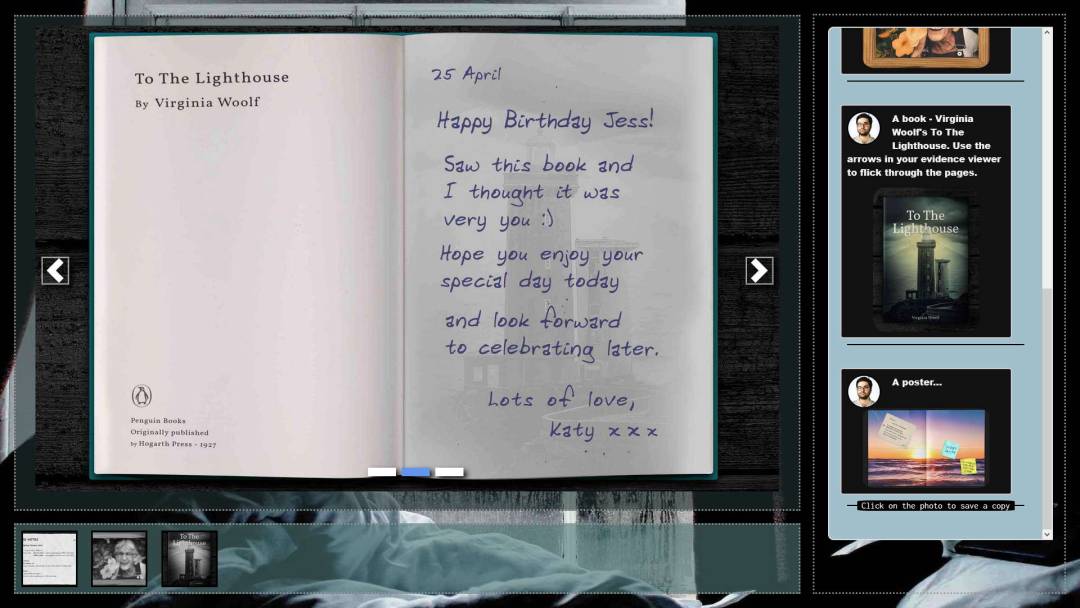 To The Lighthouse
By Virginia Woolf
Penguin Books
Originally published
by Hogarth Press - 1927
25 April
Happy Birthday Jess!
Saw this book and
I thought it was
very you :)
Hope you enjoy your
special day today
and look forward
to celebrating later.
Lots of love,
Katy x x x
A book - Virginia
Woolf's To The
Lighthouse. Use the
arrows in your evidence viewer
to flick through the pages.
To The
Lighthouse
Virginia Woolf
A poster...
Click on the photo to save a copy
To The
Lighthouse